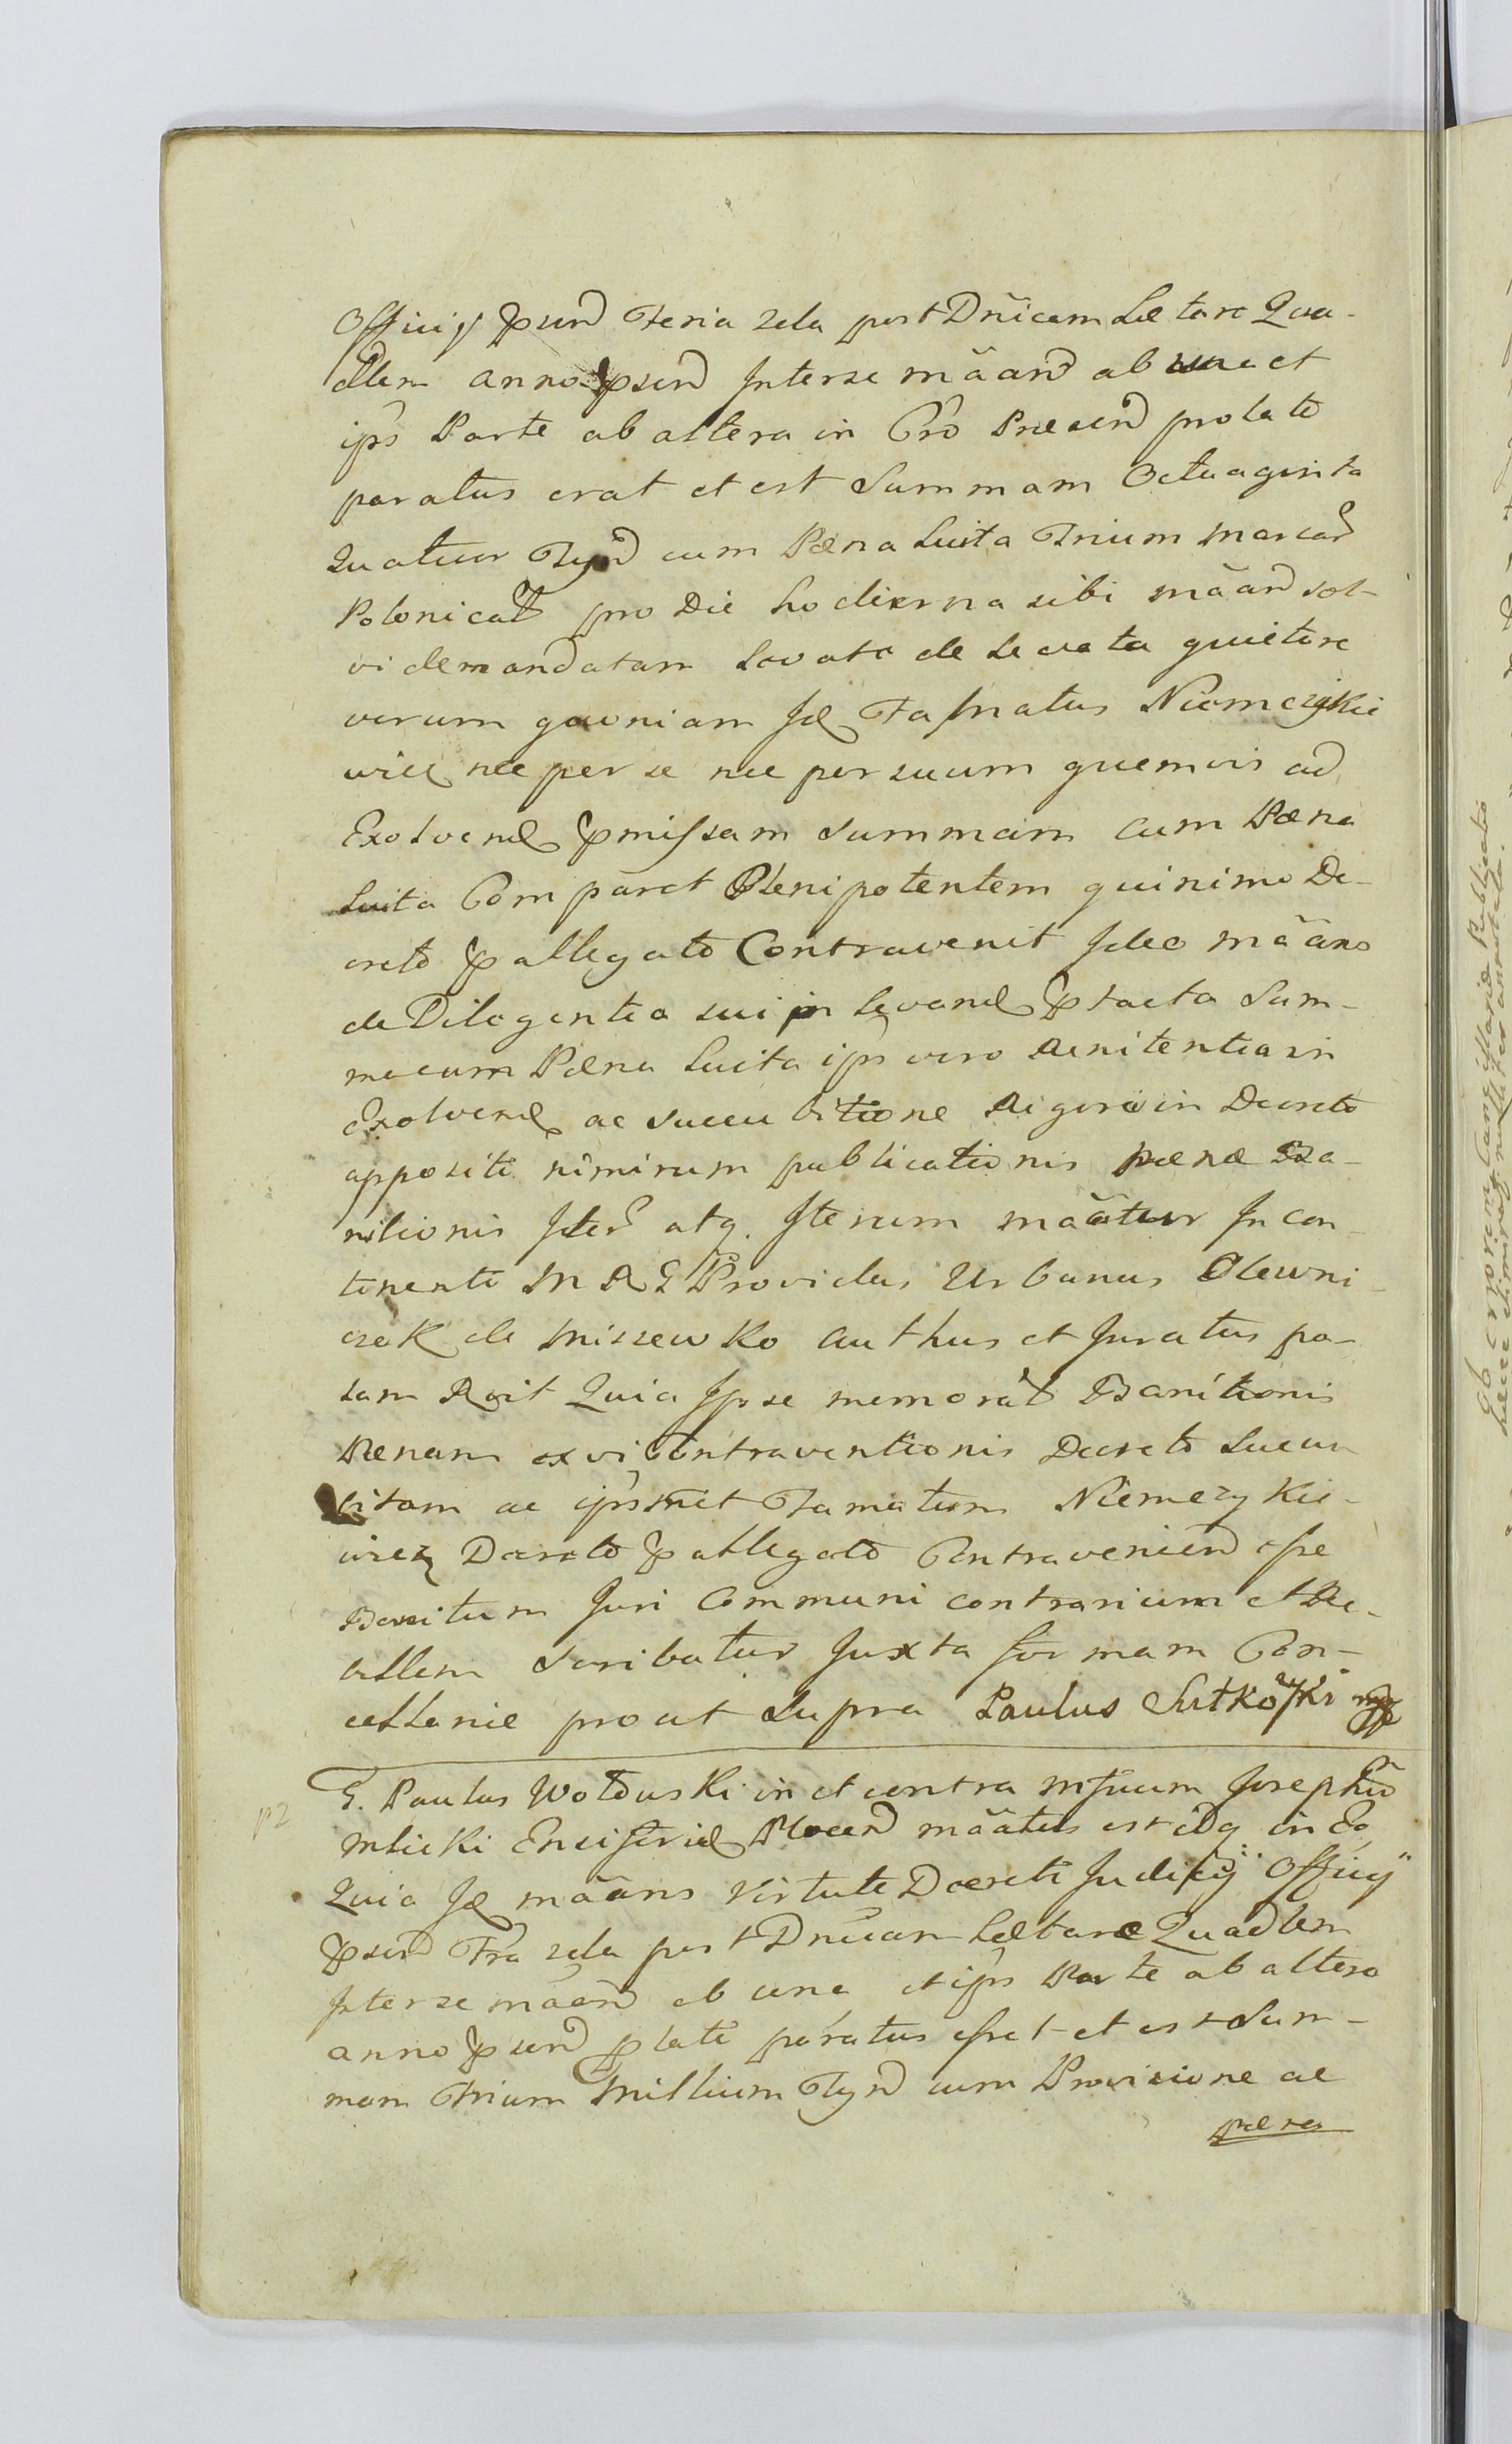 Officij psend Feria 2da post Dnicam Lætare Qua-
dllem anno psend Interse mãand ab una et
ips Parte ab altera in Cro Præsend prolate
paratus erat et est Summam Octuaginta
Quatuor Tynd cum Pæna Luita Trium Marcar
Polonical pro Die hodierna sibi mãand sol-
vi demandatam Levata de Levata quietare
verum quoniam Famatus Niemczykie
wicz nec per se nec per suum quemvis ad
Exolvend pmissam Summam cum Pæna
Luita Comparet Plenipotentem quinimo De-
creto pallegato Contravenit Ideo mãans
de Diligentia sui in levand ptacta Sum-
ma cum Pæna Luita ips vero Renitentia in
Exolvend ac Succubitione Rigoris in Decreto
appositi nimirum publicationis pænæ Ba-
nitionis Iter atq. Iterum mãatur In con-
tinenti M R G Providus Urbanus Olewni-
czek de Miszewko authus et Juratus pa-
lam Rcit Quia Ipse memorat Banitionis
Pænam ex vi Contraventionis Decreto Succu
bitam ac ipsmet Famatum Niemczykie-
wicz Decreto pallegato Contravenien esse
Banitum Juri Communi contrarium et De-
Scribatur Juxta formam Can-
cellariæ prout Supra Paulus Sutkowski mpp
G. Paulus Wołduski in et contra Mfcum Josephum
Mlicki Ensiferid Plocend mãatus est idq in Eo
Quia mãans Virtute Decreti Judicij Officij
psend Fria 2da post Dnicam Lætare Quadlem
Interse mãand ab una et ips Parte ab altera
anno psend plati paratus esset et est Sum-
mam Trium Millium Tynd cum Provisione ac
pæna
p2
Ob errorem Canc